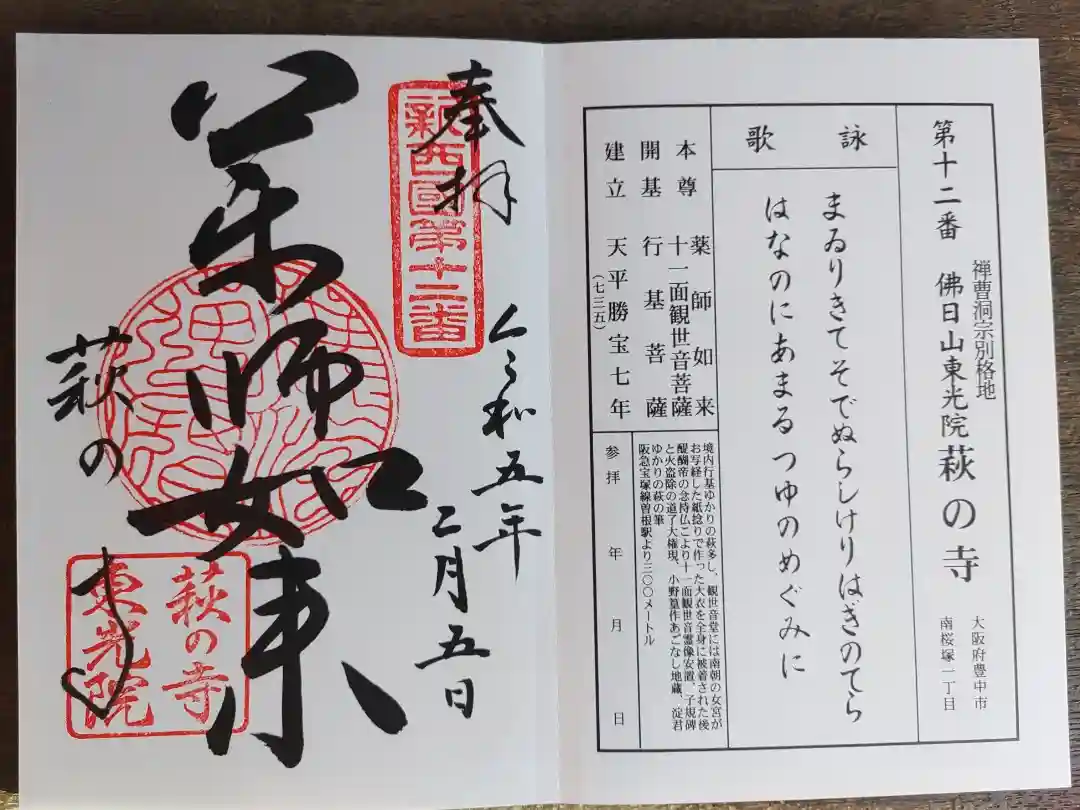 第十二番 佛日山東光院 萩の寺
禅曹洞宗別格地
大阪府豊中市
南桜塚一丁目
詠歌
まゐりきてそでぬらしけりはぎのてら
はなのにあまるつゆのめぐみに
本尊 薬師如来
十一面観世音菩薩
開基 行基菩薩
建立 天平勝宝七年
(七三五)
境内行基ゆかりの萩多し、観世音堂には南朝の女宮が
お写経した紙捻りで作った大衣を全身に被着された後
醍醐帝の念持仏こより十一面観世音霊像安置、子規碑
と火盗除の道了大権現、小野篁作あごなし地蔵、淀君
ゆかりの萩の筆
阪急宝塚線曽根駅より三〇〇メートル
参拝 年 月 日
奉拝
新西國第十二番
令和五年
二月五日
薬師如来
萩の寺
萩の寺
東光院